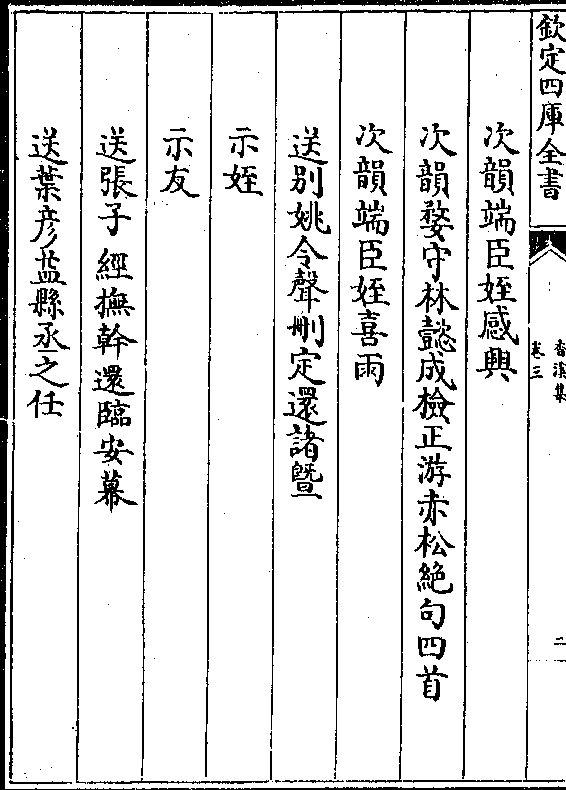 欽定四庫全書
香溪集
卷三
二
次韻端臣姪感興
次韻婺守林懿成檢正游赤松絶句四首
次韻端臣姪喜雨
送別姚令聲刪定還諸曁
示姪
示友
送張子經撫幹還臨安幕
送葉彦盐縣丞之任